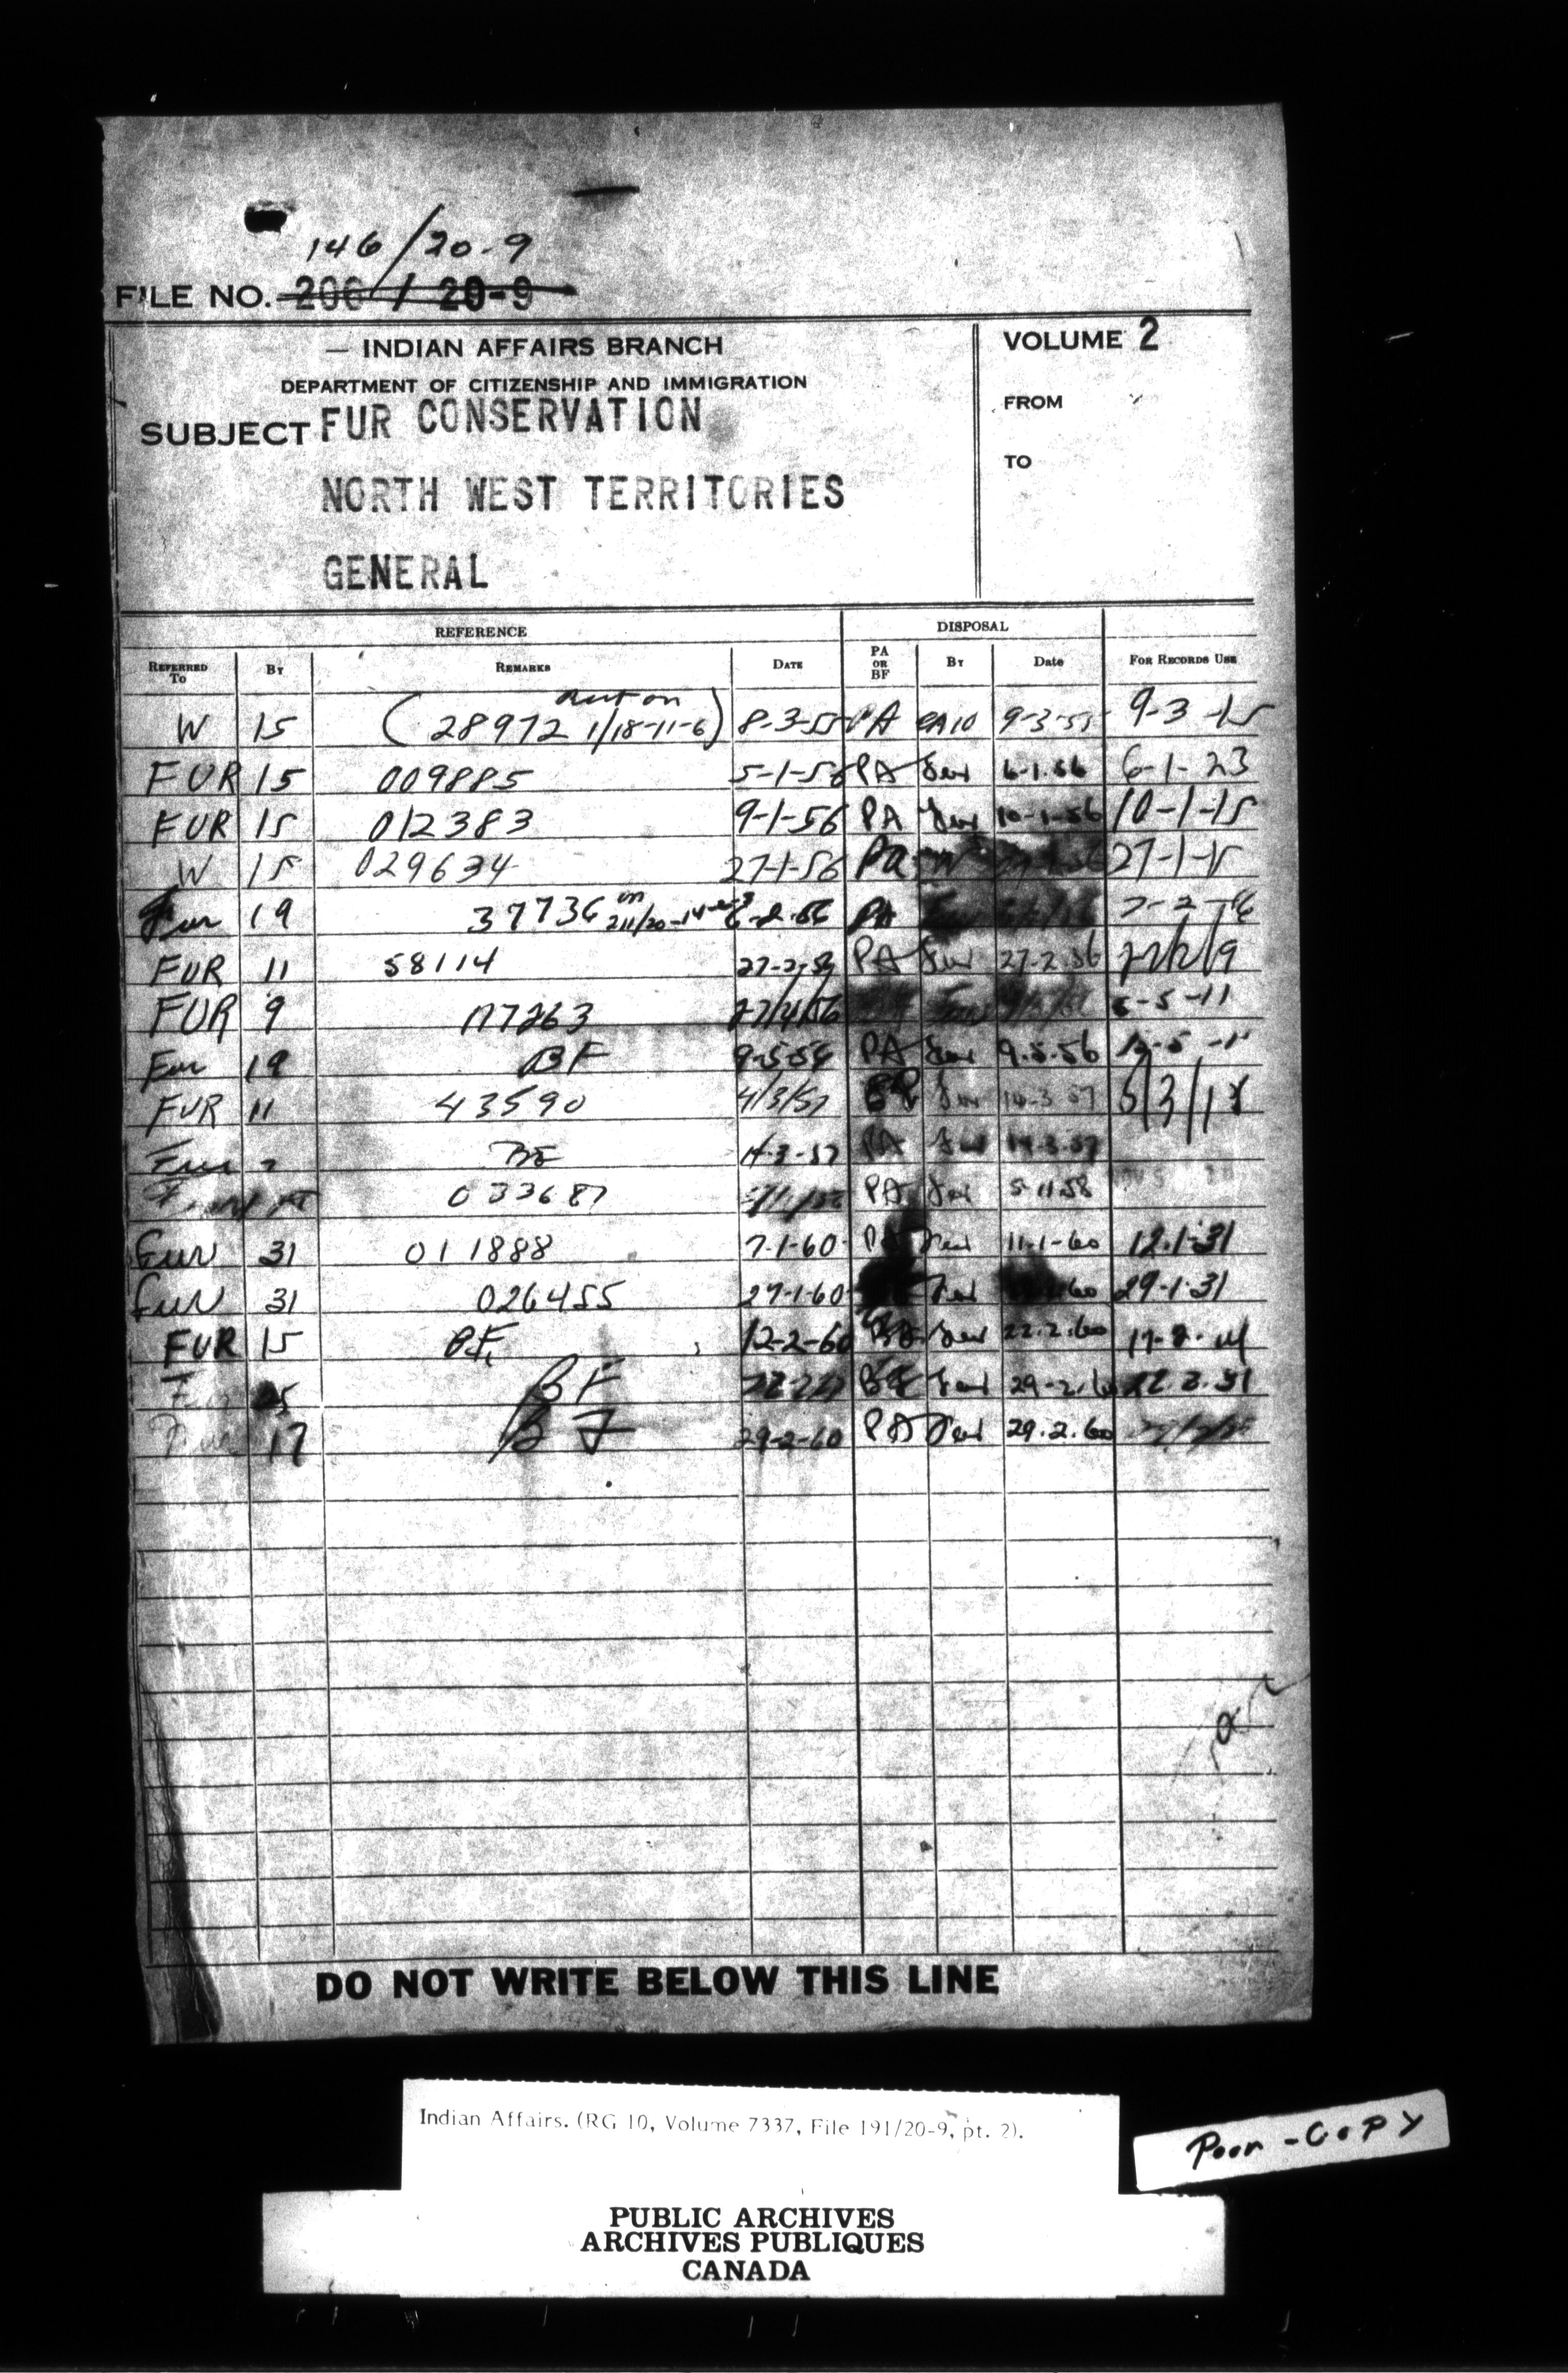 146/20-9
FILE NO. 206 / 20-9
— INDIAN AFFAIRS BRANCH
DEPARTMENT OF CITIZENSHIP AND IMMIGRATION
SUBJECT FUR CONSERVATION
NORTH WEST TERRITORIES
GENERAL
VOLUME 2
FROM
TO
REFERENCE DISPOSAL
REFERRED TO BY REMARKS DATE PA OR BF BY Date FOR RECORDS USE
W 15 (28972 1/18-11-6) 8-3-55 PA 9-3-55 9-3-15
FUR 15 009885 5-1-56 PA Fur 6-1-56 6-1-23
FUR 15 012383 9-1-56 PA Fur 10-1-56 10-1-15
W 15 029634 27-1-56 PA 27-1-15
Fur 19 37736 6-2-56 PA
FUR 11 58114 27-2-56 PA Fur 27-2-56
FUR 9 27/4/56 5-5-11
Fur 19 BF 9-5-56 PA Fur 9.5.56
FUR 11 43590 4/3/57 Fur 14-3-57
Fur BF 14-3-57 PA Fur 14-3-57
033687 PA Fur 5-11-58
Fur 31 011888 7-1-60 PA Fur 11-1-60 12-1-31
Fur 31 026455 27-1-60 Fur 29-1-31
FUR 15 BF 12-2-60 BF Fur 22.2.60
BF BF Fur 29-2-60 22.2.31
17 BF 29-2-60 PA Fur 29.2.60
DO NOT WRITE BELOW THIS LINE
Indian Affairs. (RG 10, Volume 7337, File 191/20-9, pt. 2).
Poor-COPY
PUBLIC ARCHIVES
ARCHIVES PUBLIQUES
CANADA